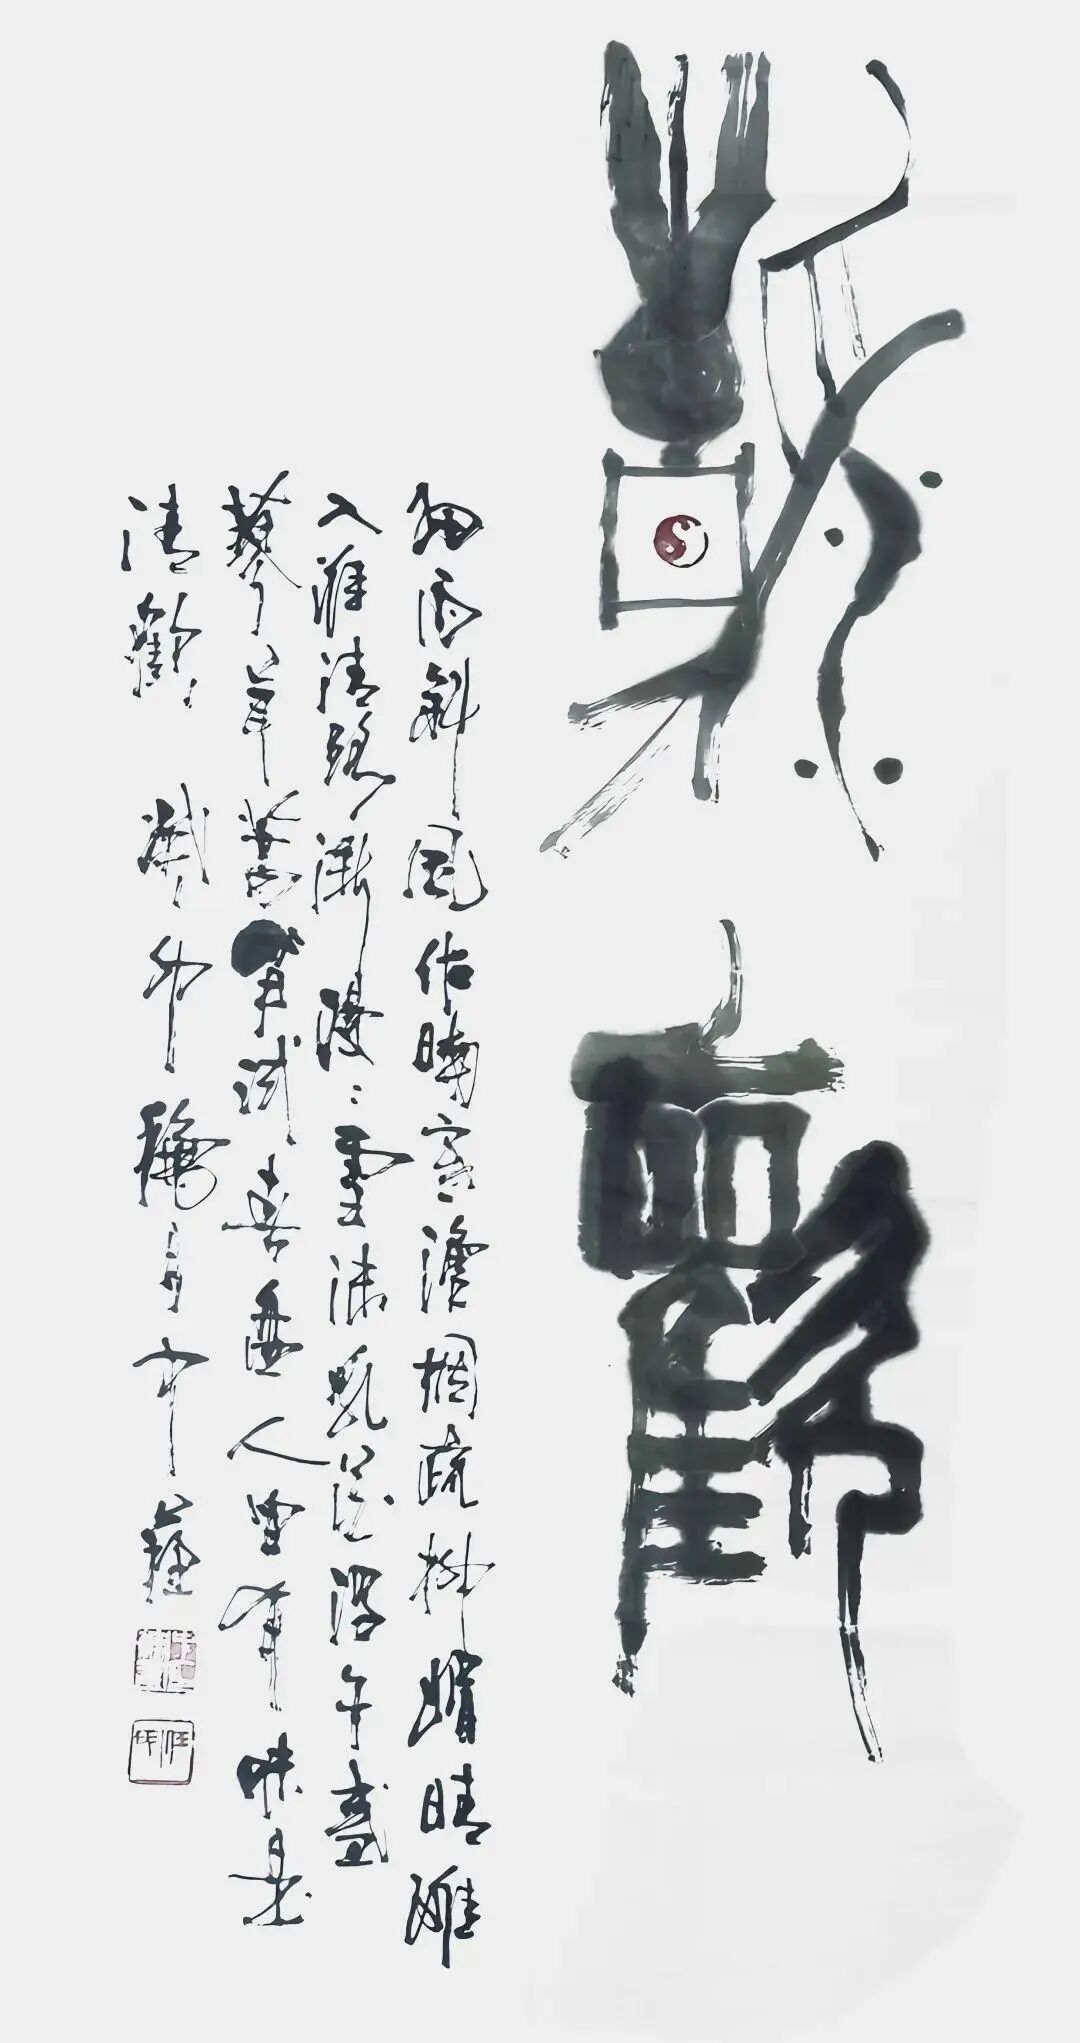 清歡
細雨斜風作曉寒澹烟疏柳媚晴灘
入淮清洛漸漫〻雪沫乳花浮午盞
蓼茸蒿筍試春盤人間有味是
清歡 卯龝月